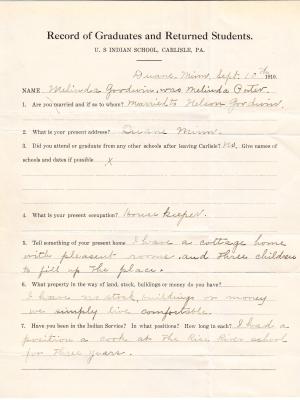 Record of Graduates and Returned Students.
U. S INDIAN SCHOOL, CARLISLE, PA.
Duane, Minn, Sept. 10th, 1910.
NAME Melinda Goodwin, was Melinda Peter.
1. Are you married and if so to whom? Married to Nelson Goodwin.
2. What is your present address? Duane Minn.
3. Did you attend or graduate from any other schools after leaving Carlisle? No. Give names of
schools and dates if possible x
4. What is your present occupation? House keeper.
5. Tell something of your present home I have a cottage home
with pleasent rooms. and three children
to fill up the place.
6. What property in the way of land, stock, buildings or money do you have?
I have no stock, buildings or money
we simply live comfortable.
7. Have you been in the Indian Service? In what positions? How long in each? I had a
position a cook at the Rice River school
for three years.